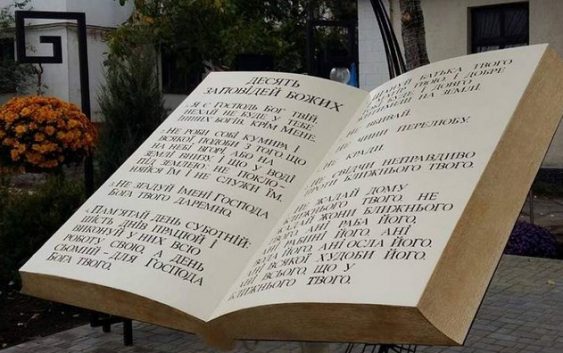 ДЕСЯТЬ
ЗАПОВІДЕЙ БОЖИХ
Я Є ГОСПОДЬ БОГ ТВІЙ.
НЕХАЙ НЕ БУДЕ У ТЕБЕ
ІНШИХ БОГІВ, КРІМ МЕНЕ.
НЕ РОБИ СОБІ КУМИРА І
ВСЯКОЇ ПОДОБИ З ТОГО ЩО
НА НЕБІ ВГОРІ, АБО НА
ЗЕМЛІ ВНИЗУ І ЩО У ВОДІ
ПІД ЗЕМЛЕЮ: НЕ ПОКЛО-
НЯЙСЯ ЇМ І НЕ СЛУЖИ ЇМ.
НЕ ЗГАДУЙ ІМЕНІ ГОСПОДА
БОГА ТВОГО ДАРЕМНО.
ПАМ'ЯТАЙ ДЕНЬ СУБОТНІЙ:
ШІСТЬ ДНІВ ПРАЦЮЙ І
ВИКОНУЙ У НИХ ВСЮ
РОБОТУ СВОЮ, А ДЕНЬ
СЬОМИЙ - ДЛЯ ГОСПОДА
БОГА ТВОГО.
ШАНУЙ БАТЬКА ТВОГО
ТВОЮ, І ДОБРЕ
БУДЕ, І ДОВГО
НА ЗЕМЛІ.
НЕ ВБИВАЙ.
НЕ ЧИНИ ПЕРЕЛЮБУ.
НЕ КРАДИ.
НЕ СВІДЧИ НЕПРАВДИВО
ПРОТИ БЛИЖНЬОГО ТВОГО.
НЕ ЖАДАЙ ДОМУ
БЛИЖНЬОГО ТВОГО, НЕ
ЖАДАЙ ЖОНИ БЛИЖНЬОГО
ТВОГО, АНІ РАБА ЙОГО,
АНІ РАБИНІ ЙОГО, АНІ
ВОЛА ЙОГО, АНІ ОСЛА ЙОГО,
АНІ ВСЯКОЇ ХУДОБИ ЙОГО,
АНІ ВСЬОГО, ЩО У
БЛИЖНЬОГО ТВОГО.